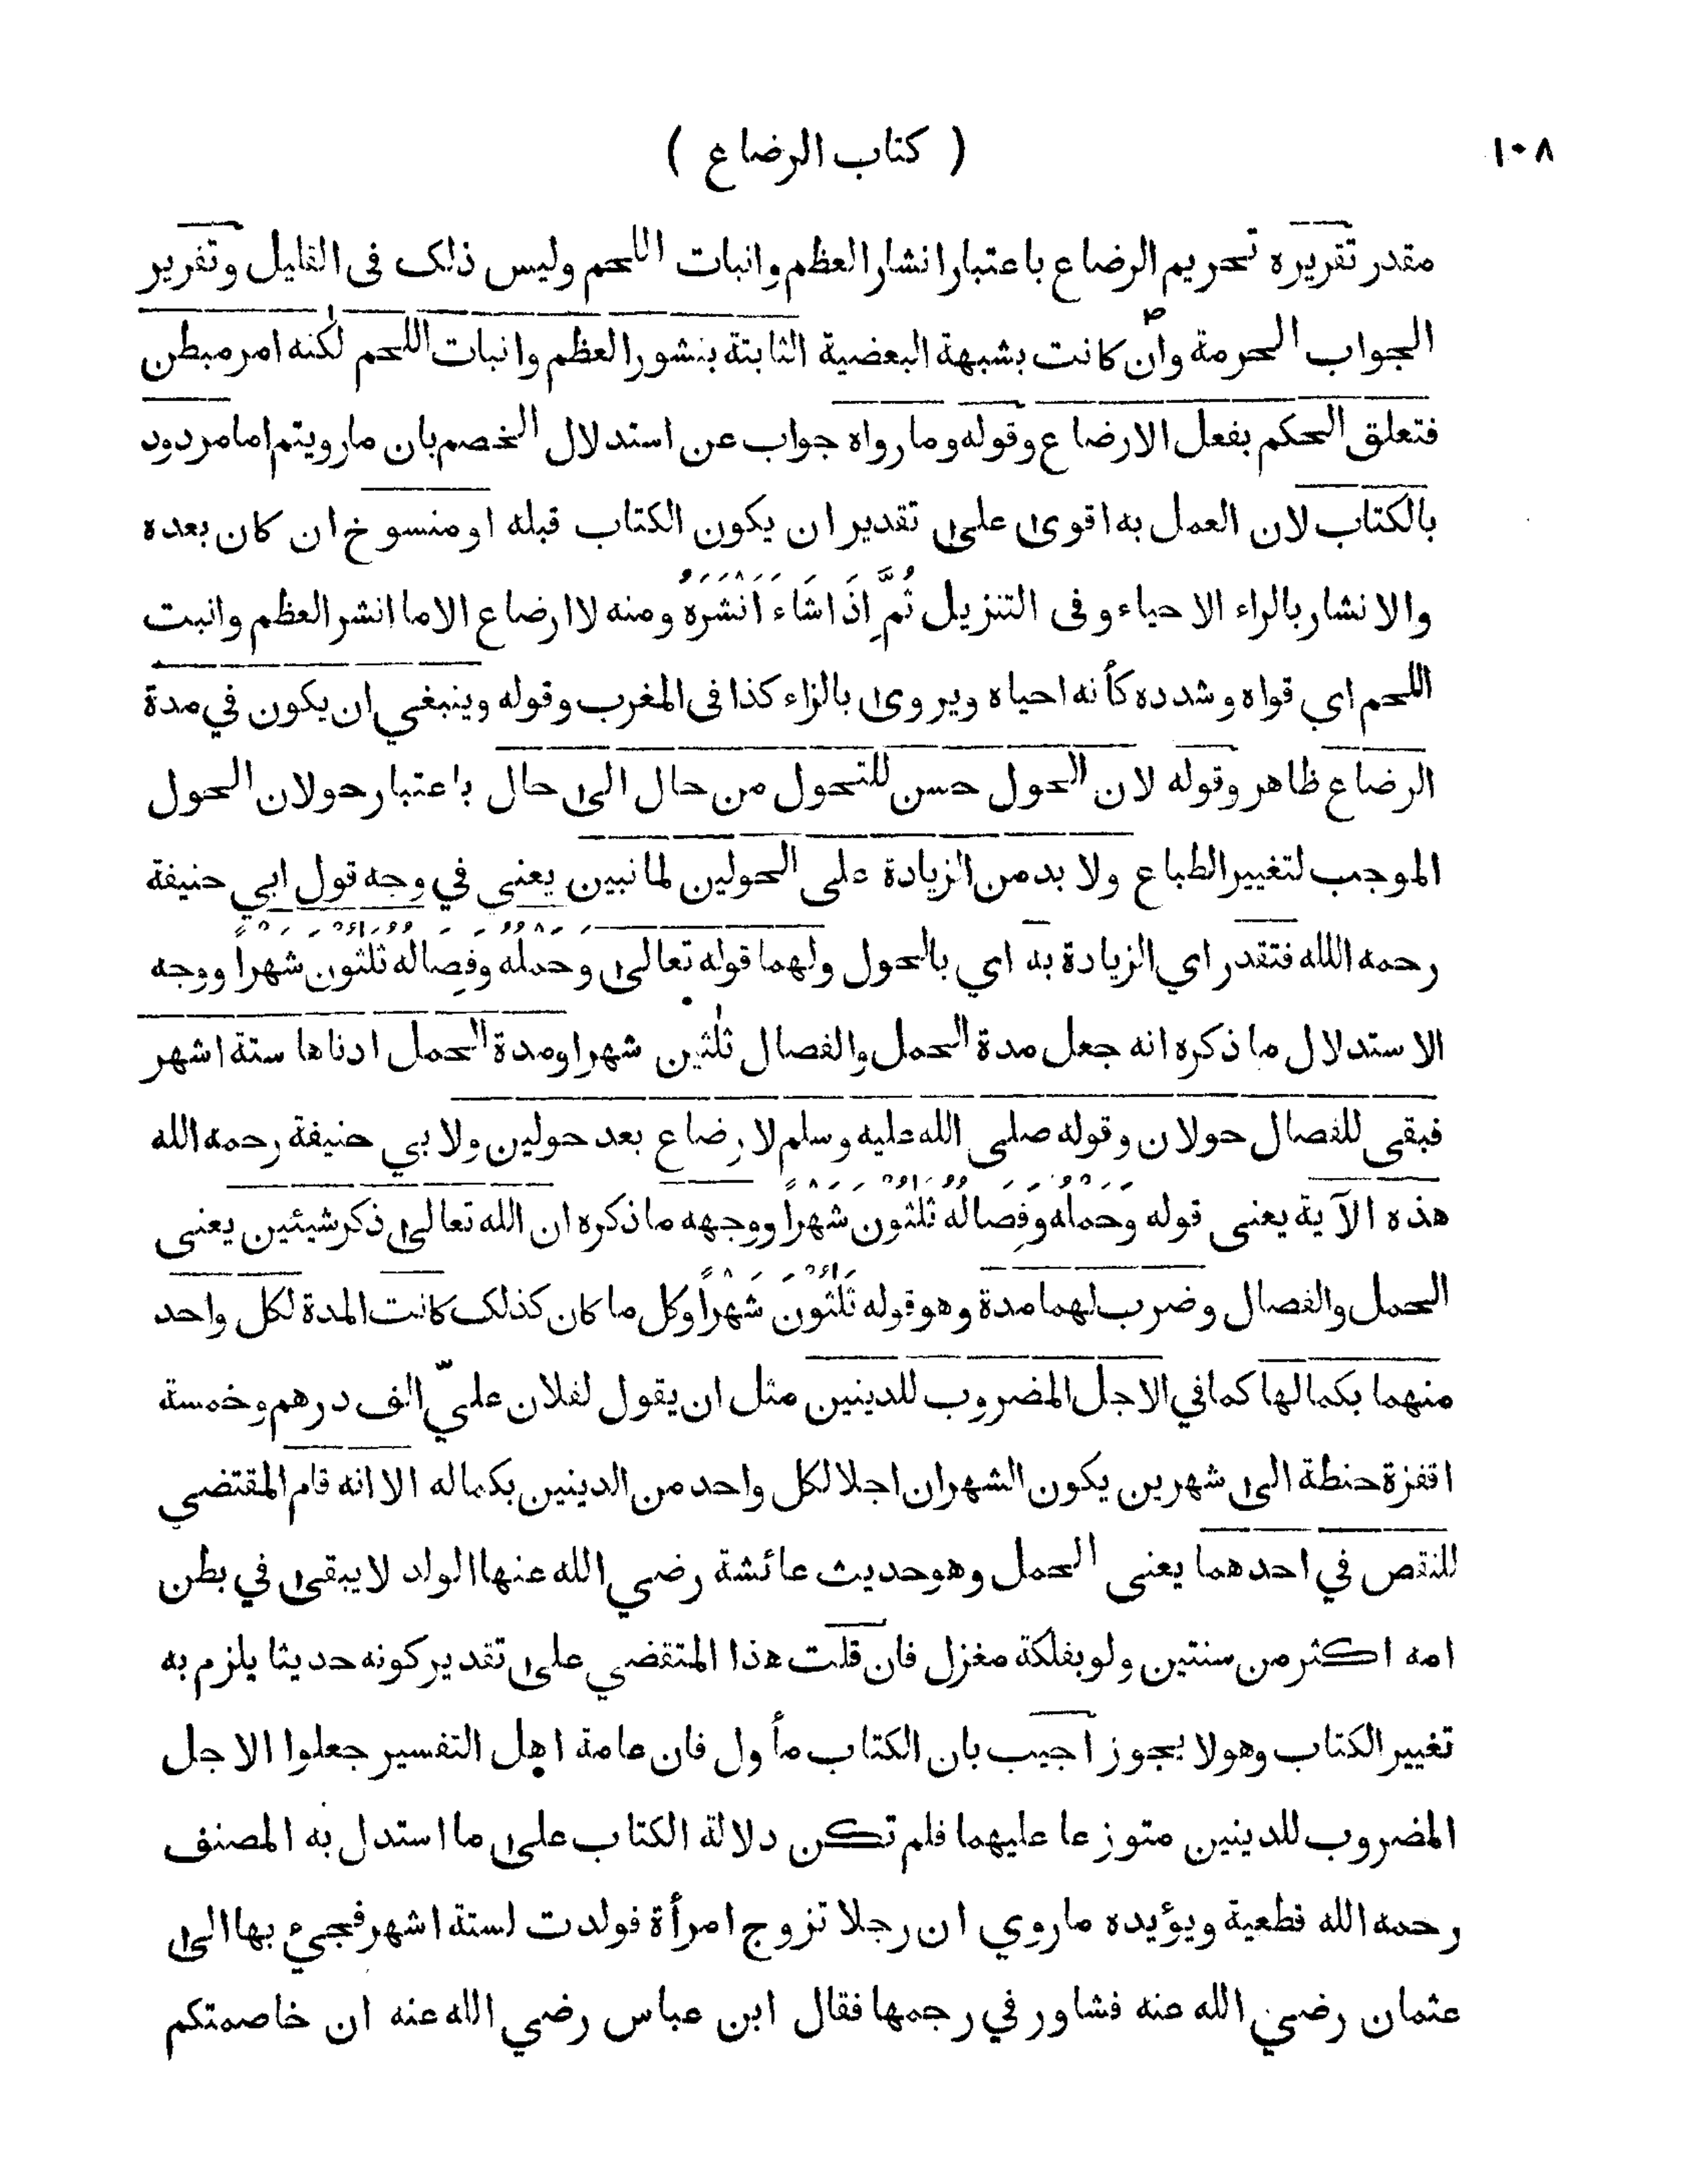 ١٠٨
( كتاب الرضاع )
مقدر تقريره تحريم الرضاع باعتبار انشار العظم وانبات اللحم وليس ذلك فى القليل وتقرير
الجواب الحرمة وان كانت بشبهة البعضية الثابتة بنشور العظم وانبات اللحم لكنه امر مبطن
فتعلق الحكم بفعل الارضاع وقوله وما رواه جواب عن استدلال الخصم بان ما رويتم اما مردود
بالكتاب لان العمل به اقوى على تقدير ان يكون الكتاب قبله او منسوخ ان كان بعده
والانشار بالراء الاحياء وفى التنزيل ثُمَّ اِذَا شَاءَ اَنْشَرَهُ ومنه لا ارضاع الا ما انشر العظم وانبت
اللحم اي قواه وشدده كأنه احياه ويروى بالزاء كذا فى المغرب وقوله وينبغي ان يكون في مدة
الرضاع ظاهر وقوله لان الحول حسن للتحول من حال الى حال باعتبار حولان الحول
الموجب لتغيير الطباع ولا بد من الزيادة على الحولين لما نبين يعنى في وجه قول ابي حنيفة
رحمه الله فتقدر اي الزيادة به اي بالحول ولهما قوله تعالى وَحَمْلُهُ وَفِصَالُهُ ثَلٰثُونَ شَهْرًا ووجه
الاستدلال ما ذكره انه جعل مدة الحمل والفصال ثلٰثين شهرا ومدة الحمل ادناها ستة اشهر
فبقى للفصال حولان وقوله صلى الله عليه وسلم لا رضاع بعد حولين ولابي حنيفة رحمه الله
هذه الآية يعنى قوله وَحَمْلُهُ وَفِصَالُهُ ثَلٰثُونَ شَهْرًا ووجهه ما ذكره ان الله تعالى ذكر شيئين يعنى
الحمل والفصال وضرب لهما مدة وهو قوله ثَلٰثُونَ شَهْرًا وكل ما كان كذلك كانت المدة لكل واحد
منهما بكمالها كما في الاجل المضروب للدينين مثل ان يقول لفلان عليّ الف درهم وخمسة
اقفزة حنطة الى شهرين يكون الشهران اجلا لكل واحد من الدينين بكماله الا انه قام المقتضي
للنقص في احدهما يعنى الحمل وهو حديث عائشة رضي الله عنها الولد لا يبقى في بطن
امه اكثر من سنتين ولو بفلكة مغزل فان قلت هذا المتقضي على تقدير كونه حديثا يلزم به
تغيير الكتاب وهو لا يجوز اجيب بان الكتاب مأول فان عامة اهل التفسير جعلوا الاجل
المضروب للدينين متوزعا عليهما فلم تكن دلالة الكتاب على ما استدل به المصنف
رحمه الله قطعية ويؤيده ما روي ان رجلا تزوج امرأة فولدت لستة اشهر فجيء بها الى
عثمان رضي الله عنه فشاور في رجمها فقال ابن عباس رضي الله عنه ان خاصمتكم